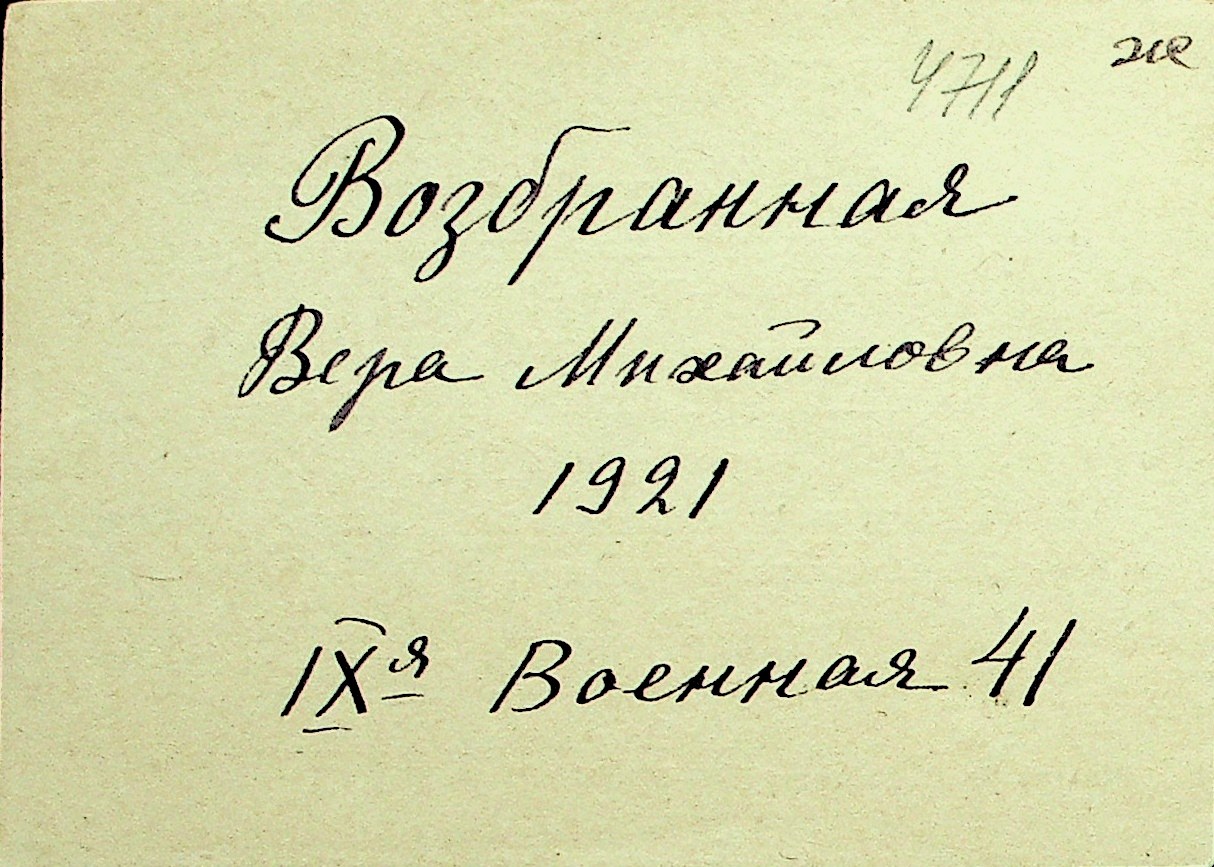 4711 же
Возбранная
Вера Михайловна
1921
IXя Военная 41